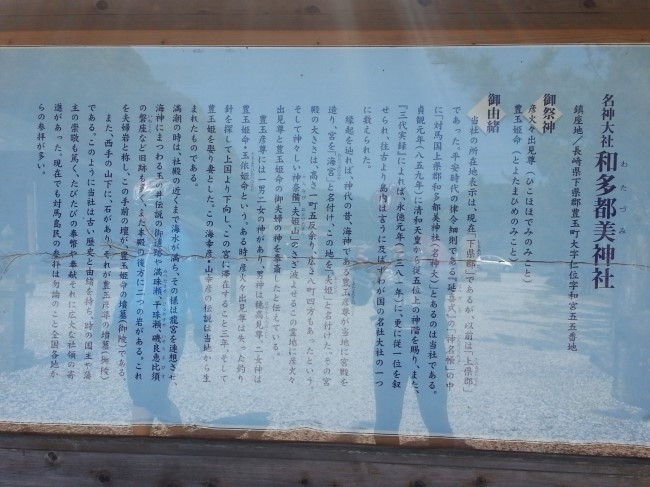 名神大社 和多都美神社
わたづみ
鎮座地／長崎県下県郡豊玉町大字仁位字和宮五五番地
御祭神
彦火々出見尊（ひこほほでみのみこと）
豊玉姫命（とよたまひめのみこと）
御由緒
当社の所在地表示は、現在「下県郡」であるが、以前は「上県郡」
であった。平安時代の律令細則である『延喜式』の「神名帳」の中
に「対馬国上県郡和多都美神社（名神大）」とあるのは当社である。
貞観元年（八五九年）に清和天皇から従五位上の神階を賜り、また、
『三代実録』によれば、永徳元年（一三八一年）に、更に従一位を叙
せられ、往古より島内は言うに及ばずわが国の名社大社の一つ
に数えられた。
縁起を辿れば、神代の昔、海神である豊玉彦尊が当地に宮殿を
造り、宮を「海宮」と名付け、この地を「夫姫」と名付けた。その宮
殿の大きさは、高さ一町五反余り、広さ八町四方もあったという。
そして神々しい神奈備「夫姫山」のさざ波よせるこの霊地に彦火々
出見尊と豊玉姫命の御夫婦の神を奉斎したと伝えている。
豊玉彦尊には一男二女の神があり、男神は穂高見尊、二女神は
豊玉姫命・玉依姫命という。ある時、彦火々出見尊は失った釣り
針を探して上国より下向し、この宮に滞在すること三年、そして
豊玉姫を娶り妻とした。この海幸彦・山幸彦の伝説は当地から生
まれたものである。
満潮の時は、社殿の近くまで海水が満ち、その様は龍宮を連想させ、
海神にまつわる玉の井伝説の御遺跡や満珠瀬、干珠瀬、磯良恵比須
の磐座など旧跡も多く、また本殿の後方に二つの岩がある。これ
を夫婦岩と称し、この手前の壇が豊玉姫命の墳墓（御陵）である。
また、西手の山下に、石があり、それが豊玉彦尊の墳墓（御陵）
である。このように当社は古い歴史と由緒を持ち、時の国主や藩
主の崇敬も篤く、たびたびの奉幣や奉献それに広大な社領の寄
進があった。現在でも対馬島民の参拝は勿論のこと全国各地か
らの参拝が多い。